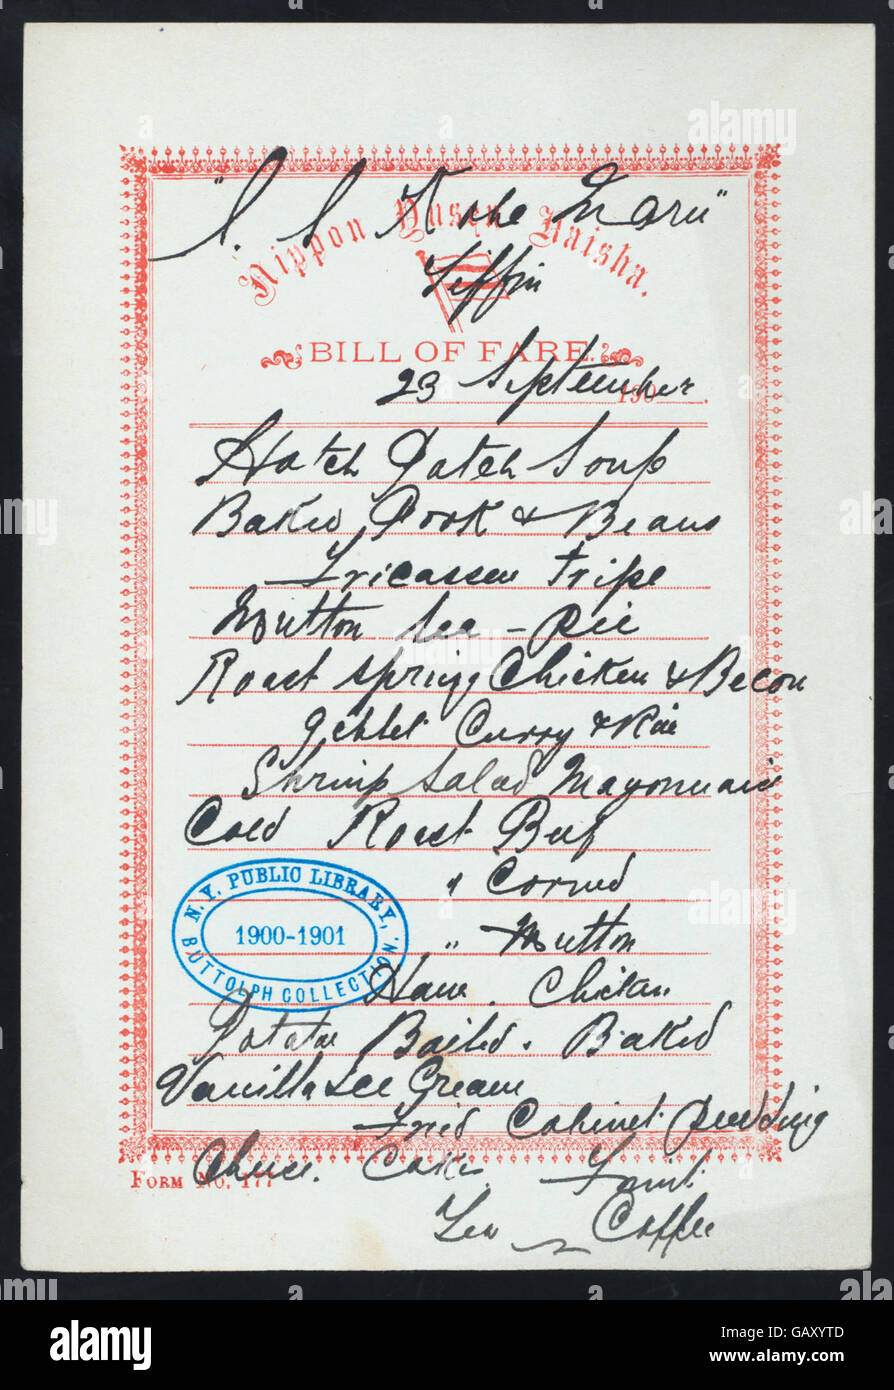 "S. S Kobe Maru"
Nippon Yusen Kaisha.
Tiffin
BILL OF FARE.
23 September 190
Hotch Potch Soup
Baked Pork & Beans
Fricassee Tripe
Mutton Sea-pie
Roast Spring Chicken & Becon
Geblet Curry & Rice
Shrimp Salad Mayonnaise
Cold Roast Beef
" Corned
" Mutton
Ham. Chicken
N. Y. PUBLIC LIBRARY,
1900-1901
BUTTOLPH COLLECTION.
Potatoe Boiled. Baked
Vanilla Ice Cream
Fried Cabinet Pudding
Cheese. Cakes Fruit
FORM No. 177
Tea Coffee
alamy
alamy
Image ID: GAXYTD
www.alamy.com